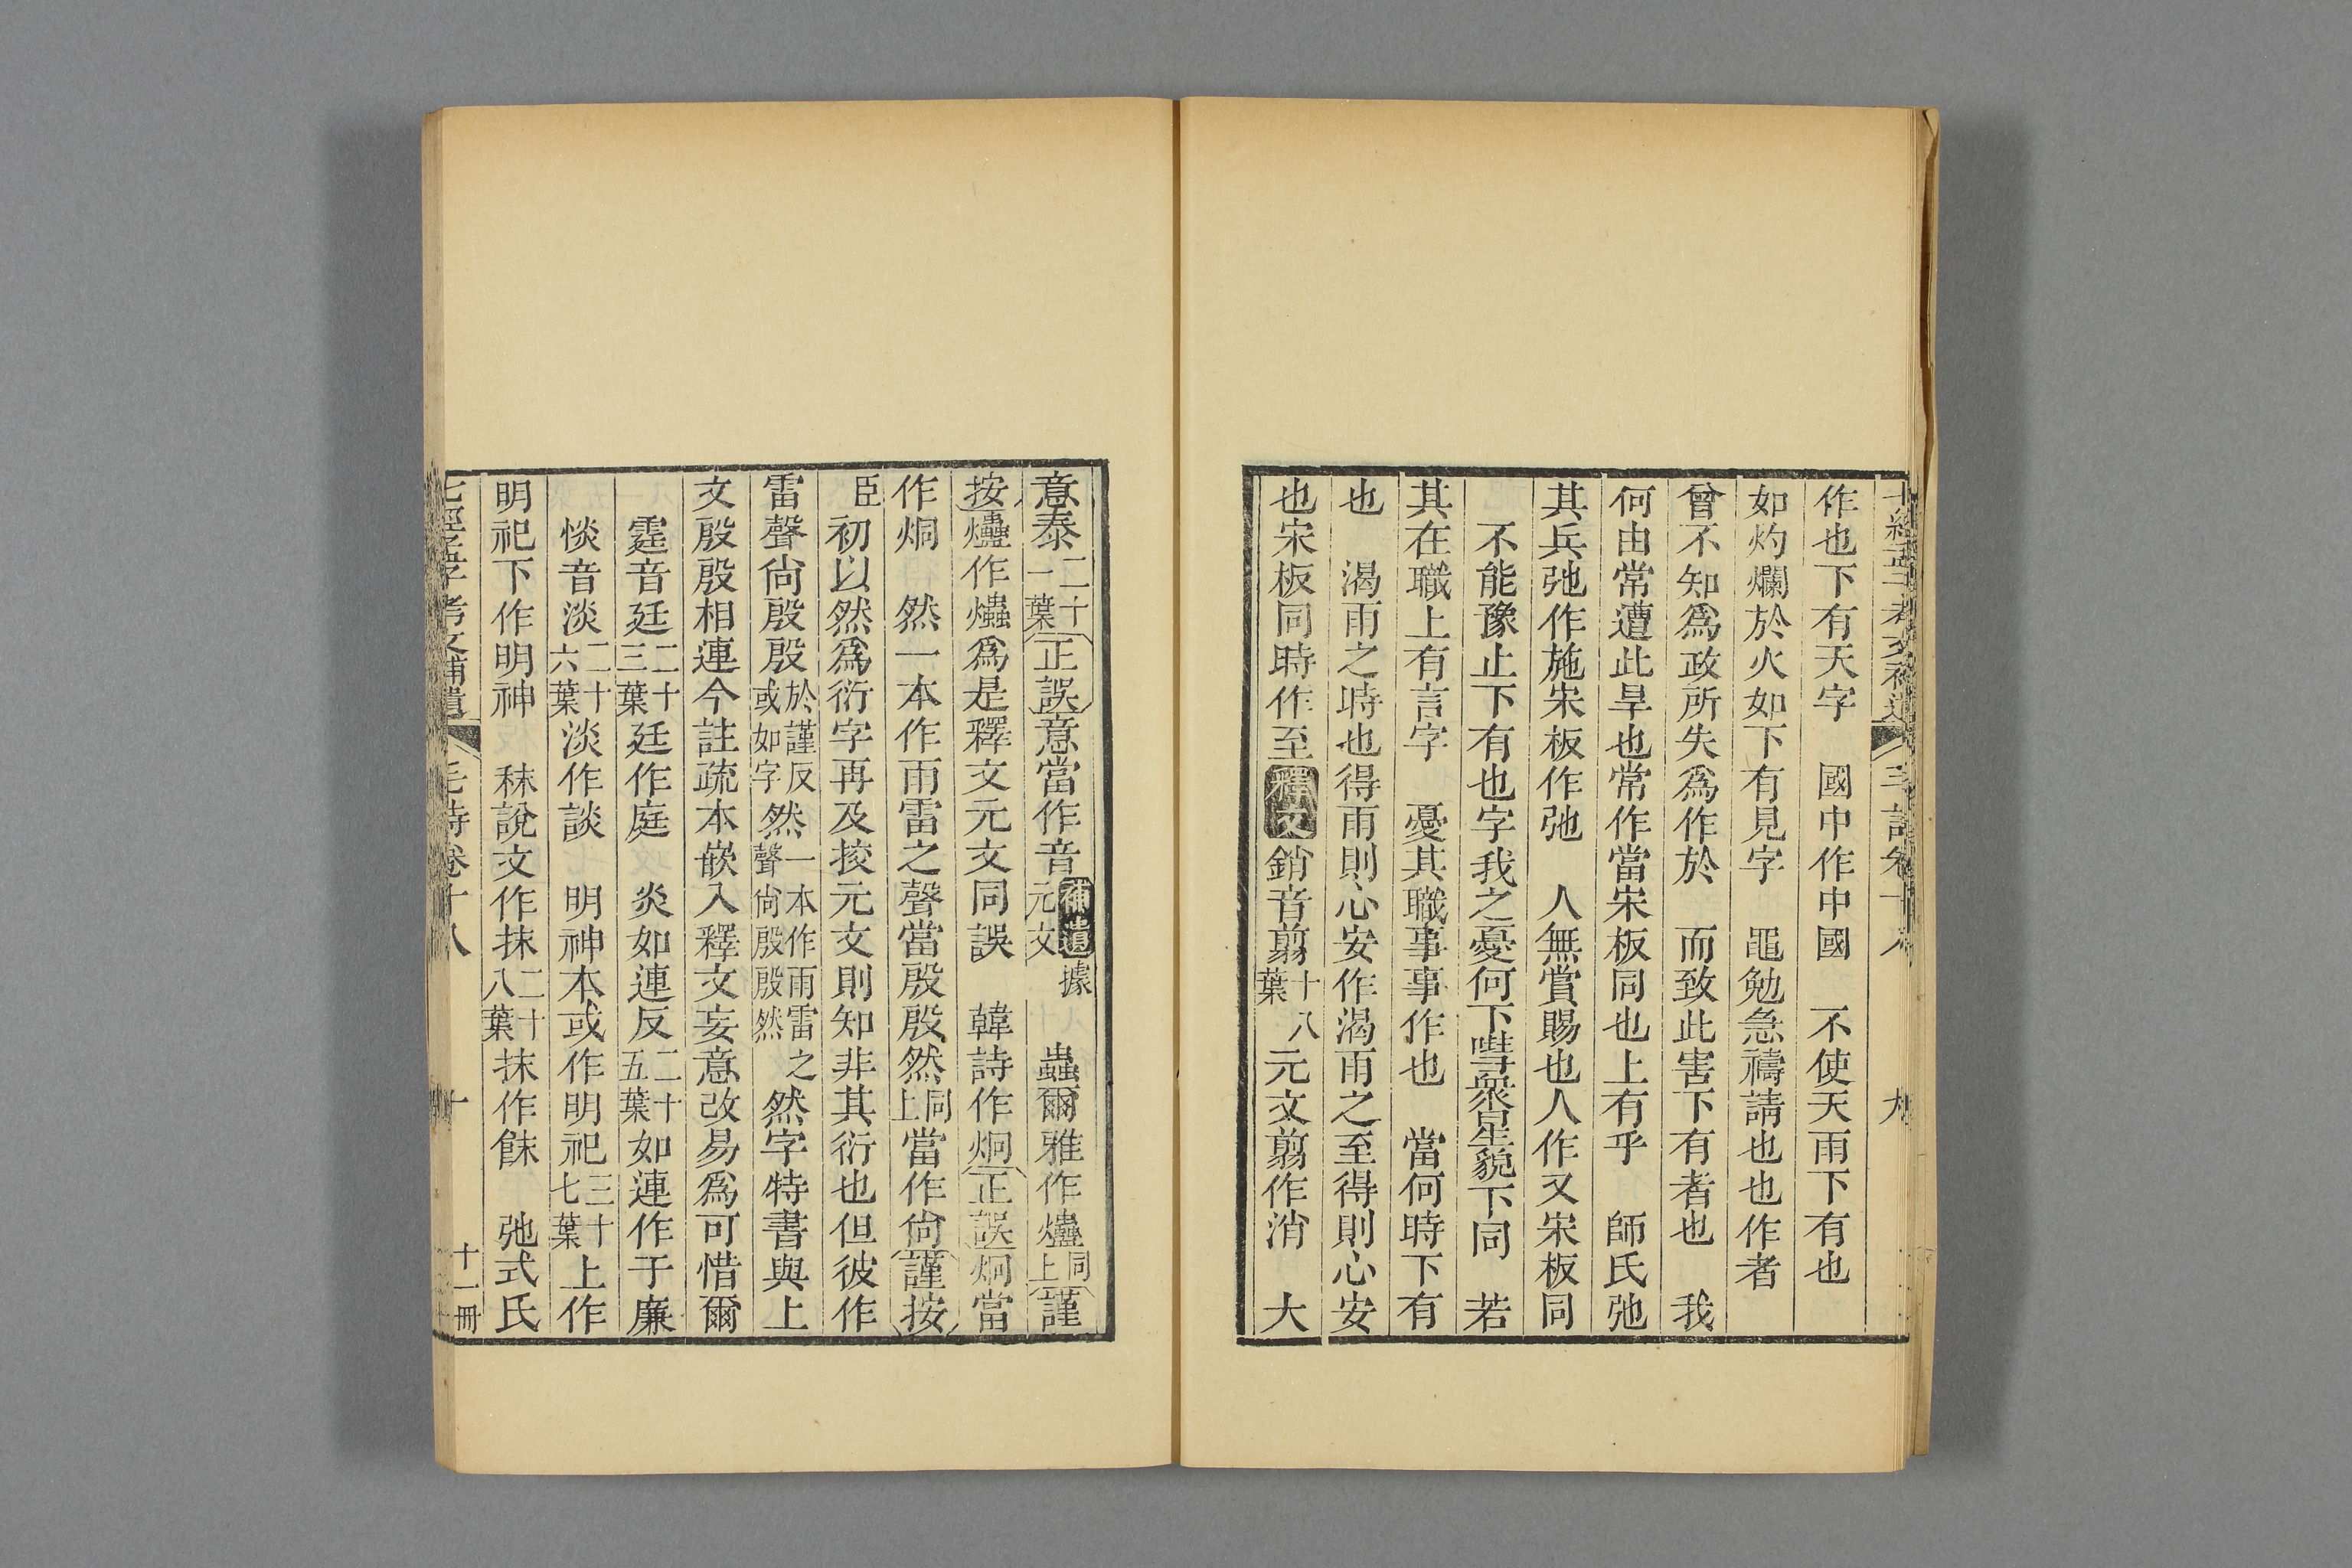 作也下有天字　國中作中國　不使天雨下有也
如灼爛於火如下有見字　黽勉急禱請也也作者
曾不知爲政所失爲作於　而致此害下有者也　我
何由常遭此旱也常作當宋板同也上有乎　師氏弛
其兵弛作施宋板作弛　人無賞賜也人作又宋板同
不能豫止下有也字我之憂何下嘒衆星貌下同　若
其在職上有言字　憂其職事事作也　當何時下有
也　渴雨之時也得雨則心安作渴雨之至得則心安
也宋板同時作至釋文銷音翦十八葉元文翦作消　大
意泰二十一葉正誤意當作音補遺據元文　蟲爾雅作爞同上謹
按爞作爞爲是釋文元文同誤　韓詩作烔正誤烔當
作炯　然一本作雨雷之聲當殷殷然同上當作尙謹按
臣初以然爲衍字再及挍元文則知非其衍也但彼作
雷聲尙殷殷於謹反或如字然一本作雨雷之聲尙殷殷然然字特書與上
文殷殷相連今註疏本嵌入釋文妄意改易爲可惜爾
霆音廷二十三葉廷作庭　炎如連反二十五葉如連作于廉
惔音淡二十六葉淡作談　明神本或作明祀三十七葉上作
明祀下作明神　秣說文作抹二十八葉抹作餗　弛式氏
七經孟子考文補遺　毛詩卷十八　十　十一冊